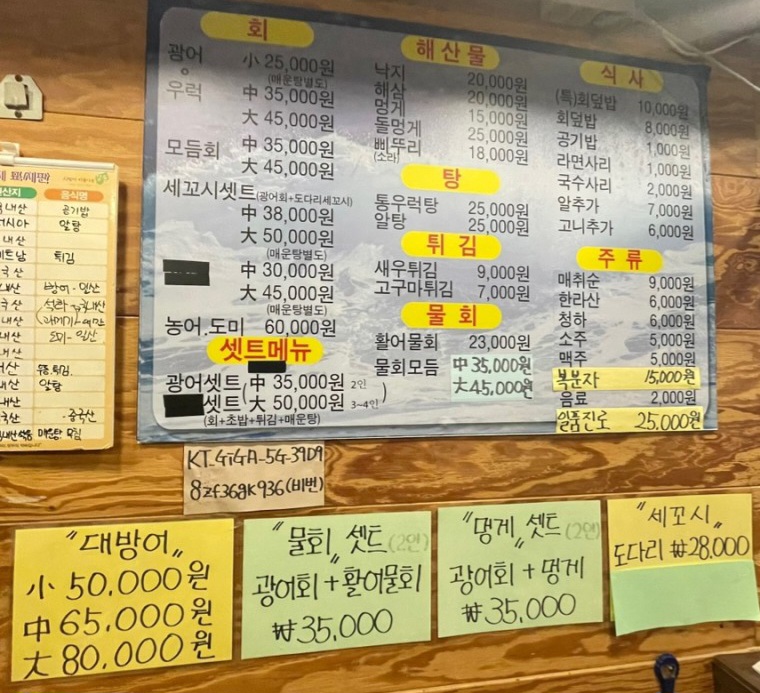 회
광어 小 25,000원
(매운탕별도)
우럭 中 35,000원
大 45,000원
모듬회 中 35,000원
大 45,000원
세꼬시셋트(광어회+도다리세꼬시)
中 38,000원
大 50,000원
(매운탕별도)
中 30,000원
大 45,000원
(매운탕별도)
농어.도미 60,000원
셋트메뉴
광어셋트 (中 35,000원 2인
셋트 (大 50,000원 3~4인
(회+초밥+튀김+매운탕)
해산물
낙지 20,000원
해삼 20,000원
멍게 15,000원
돌멍게 25,000원
삐뚜리 18,000원
(소라)
탕
통우럭탕 25,000원
알탕 25,000원
튀김
새우튀김 9,000원
고구마튀김 7,000원
물회
활어물회 23,000원
물회모듬 中 35,000원
大 45,000원
식사
(특)회덮밥 10,000원
회덮밥 8,000원
공기밥 1,000원
라면사리 1,000원
국수사리 2,000원
알추가 7,000원
고니추가 6,000원
주류
매취순 9,000원
한라산 6,000원
청하 6,000원
소주 5,000원
맥주 5,000원
복분자 15,000원
음료 2,000원
일품진로 25,000원
음식명
내산 공기밥
시아 알탕
내산
트남 튀김
국산
내산 방어-일산
국산
내산
알탕
중국산
매운탕
KT_GiGA_5G_39D9
8zf36gk936(비번)
"대방어"
小 50,000원
中 65,000원
大 80,000원
"물회" 셋트 (2인)
광어회+활어물회
₩35,000
"멍게" 셋트 (2인)
광어회+멍게
₩35,000
"세꼬시"
도다리 ₩28,000